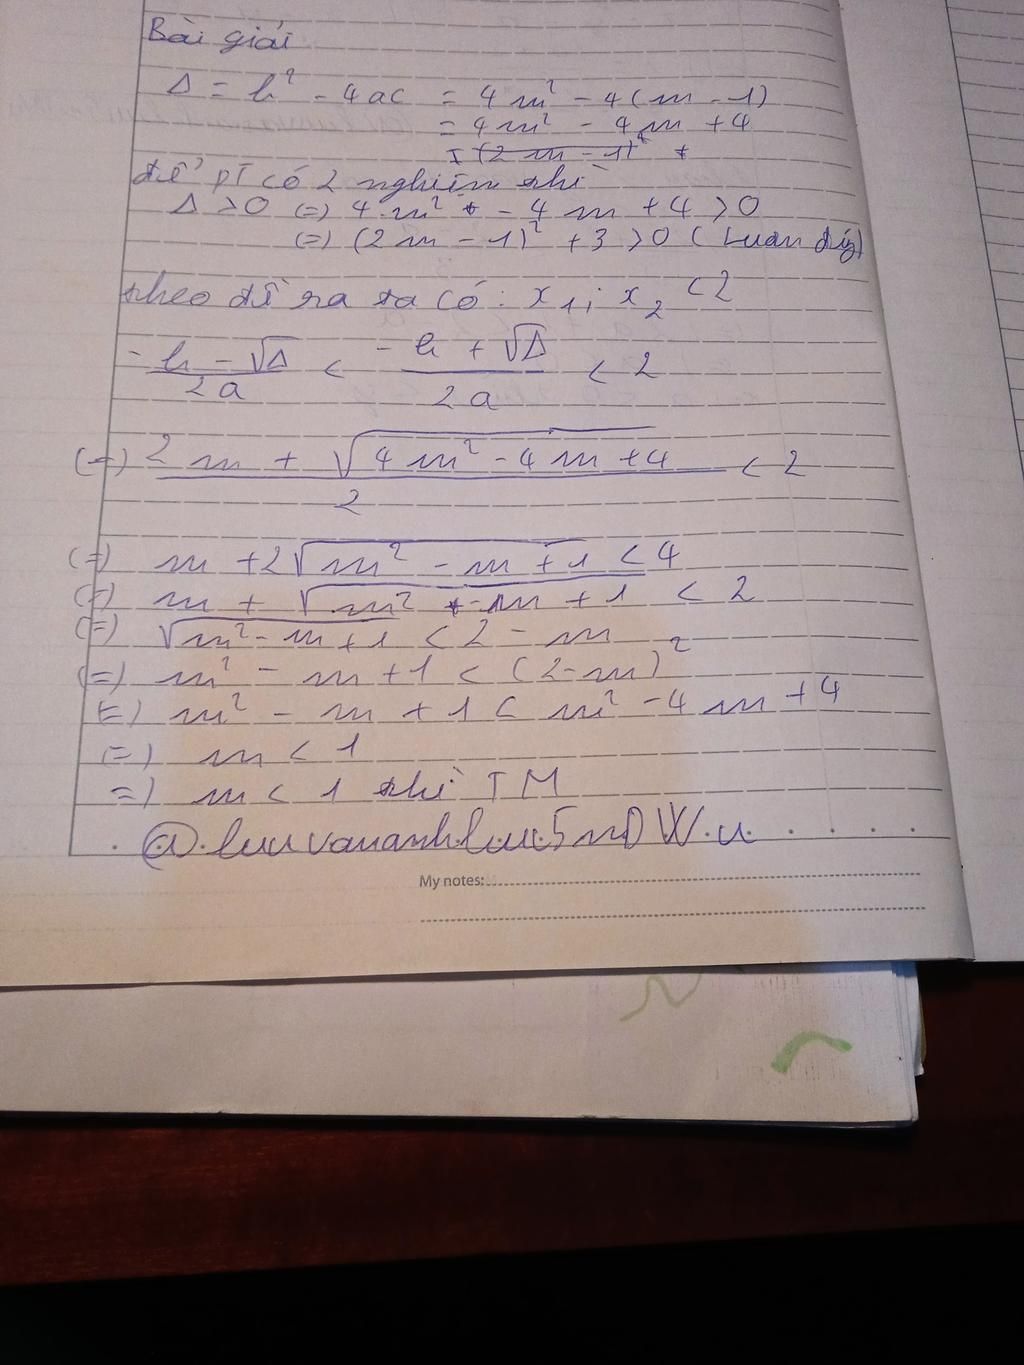 Bài giải
Δ = b² - 4ac = 4m² - 4(m - 1)
= 4m² - 4m + 4
= (2m - 1)² +
để pt có 2 nghiệm thì
Δ > 0 (=) 4m² - 4m + 4 > 0
(=) (2m - 1)² + 3 > 0 ( Luôn đúng)
theo đề ra ta có: x₁; x₂ < 2
(-b - √Δ)/2a < (-b + √Δ)/2a < 2
(=) (2m + √(4m² - 4m + 4))/2 < 2
(=) m + 2√(m² - m + 1) < 4
(=) m + √(m² - m + 1) < 2
(=) √(m² - m + 1) < 2 - m
(=) m² - m + 1 < (2-m)²
(=) m² - m + 1 < m² - 4m + 4
(=) m < 1
=) m < 1 thì TM
My notes: